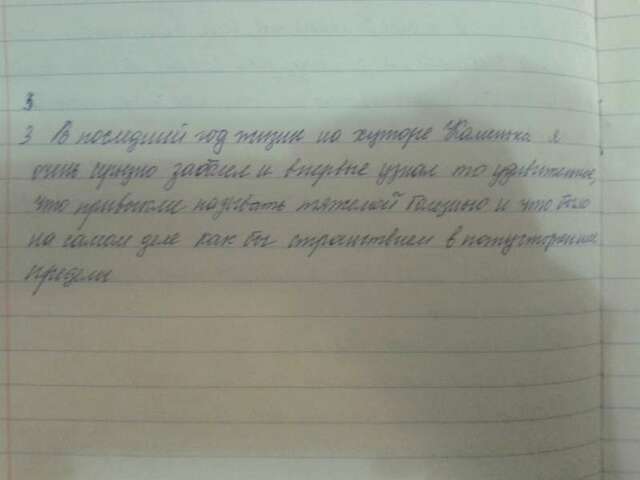 3
3 В последний год жизни на хуторе Каменка я
очень чудно заболел и впервые узнал то удивительное,
что привыкли называть тяжелой болезнью и что было
на самом деле как бы странствием в потусторонние
пределы